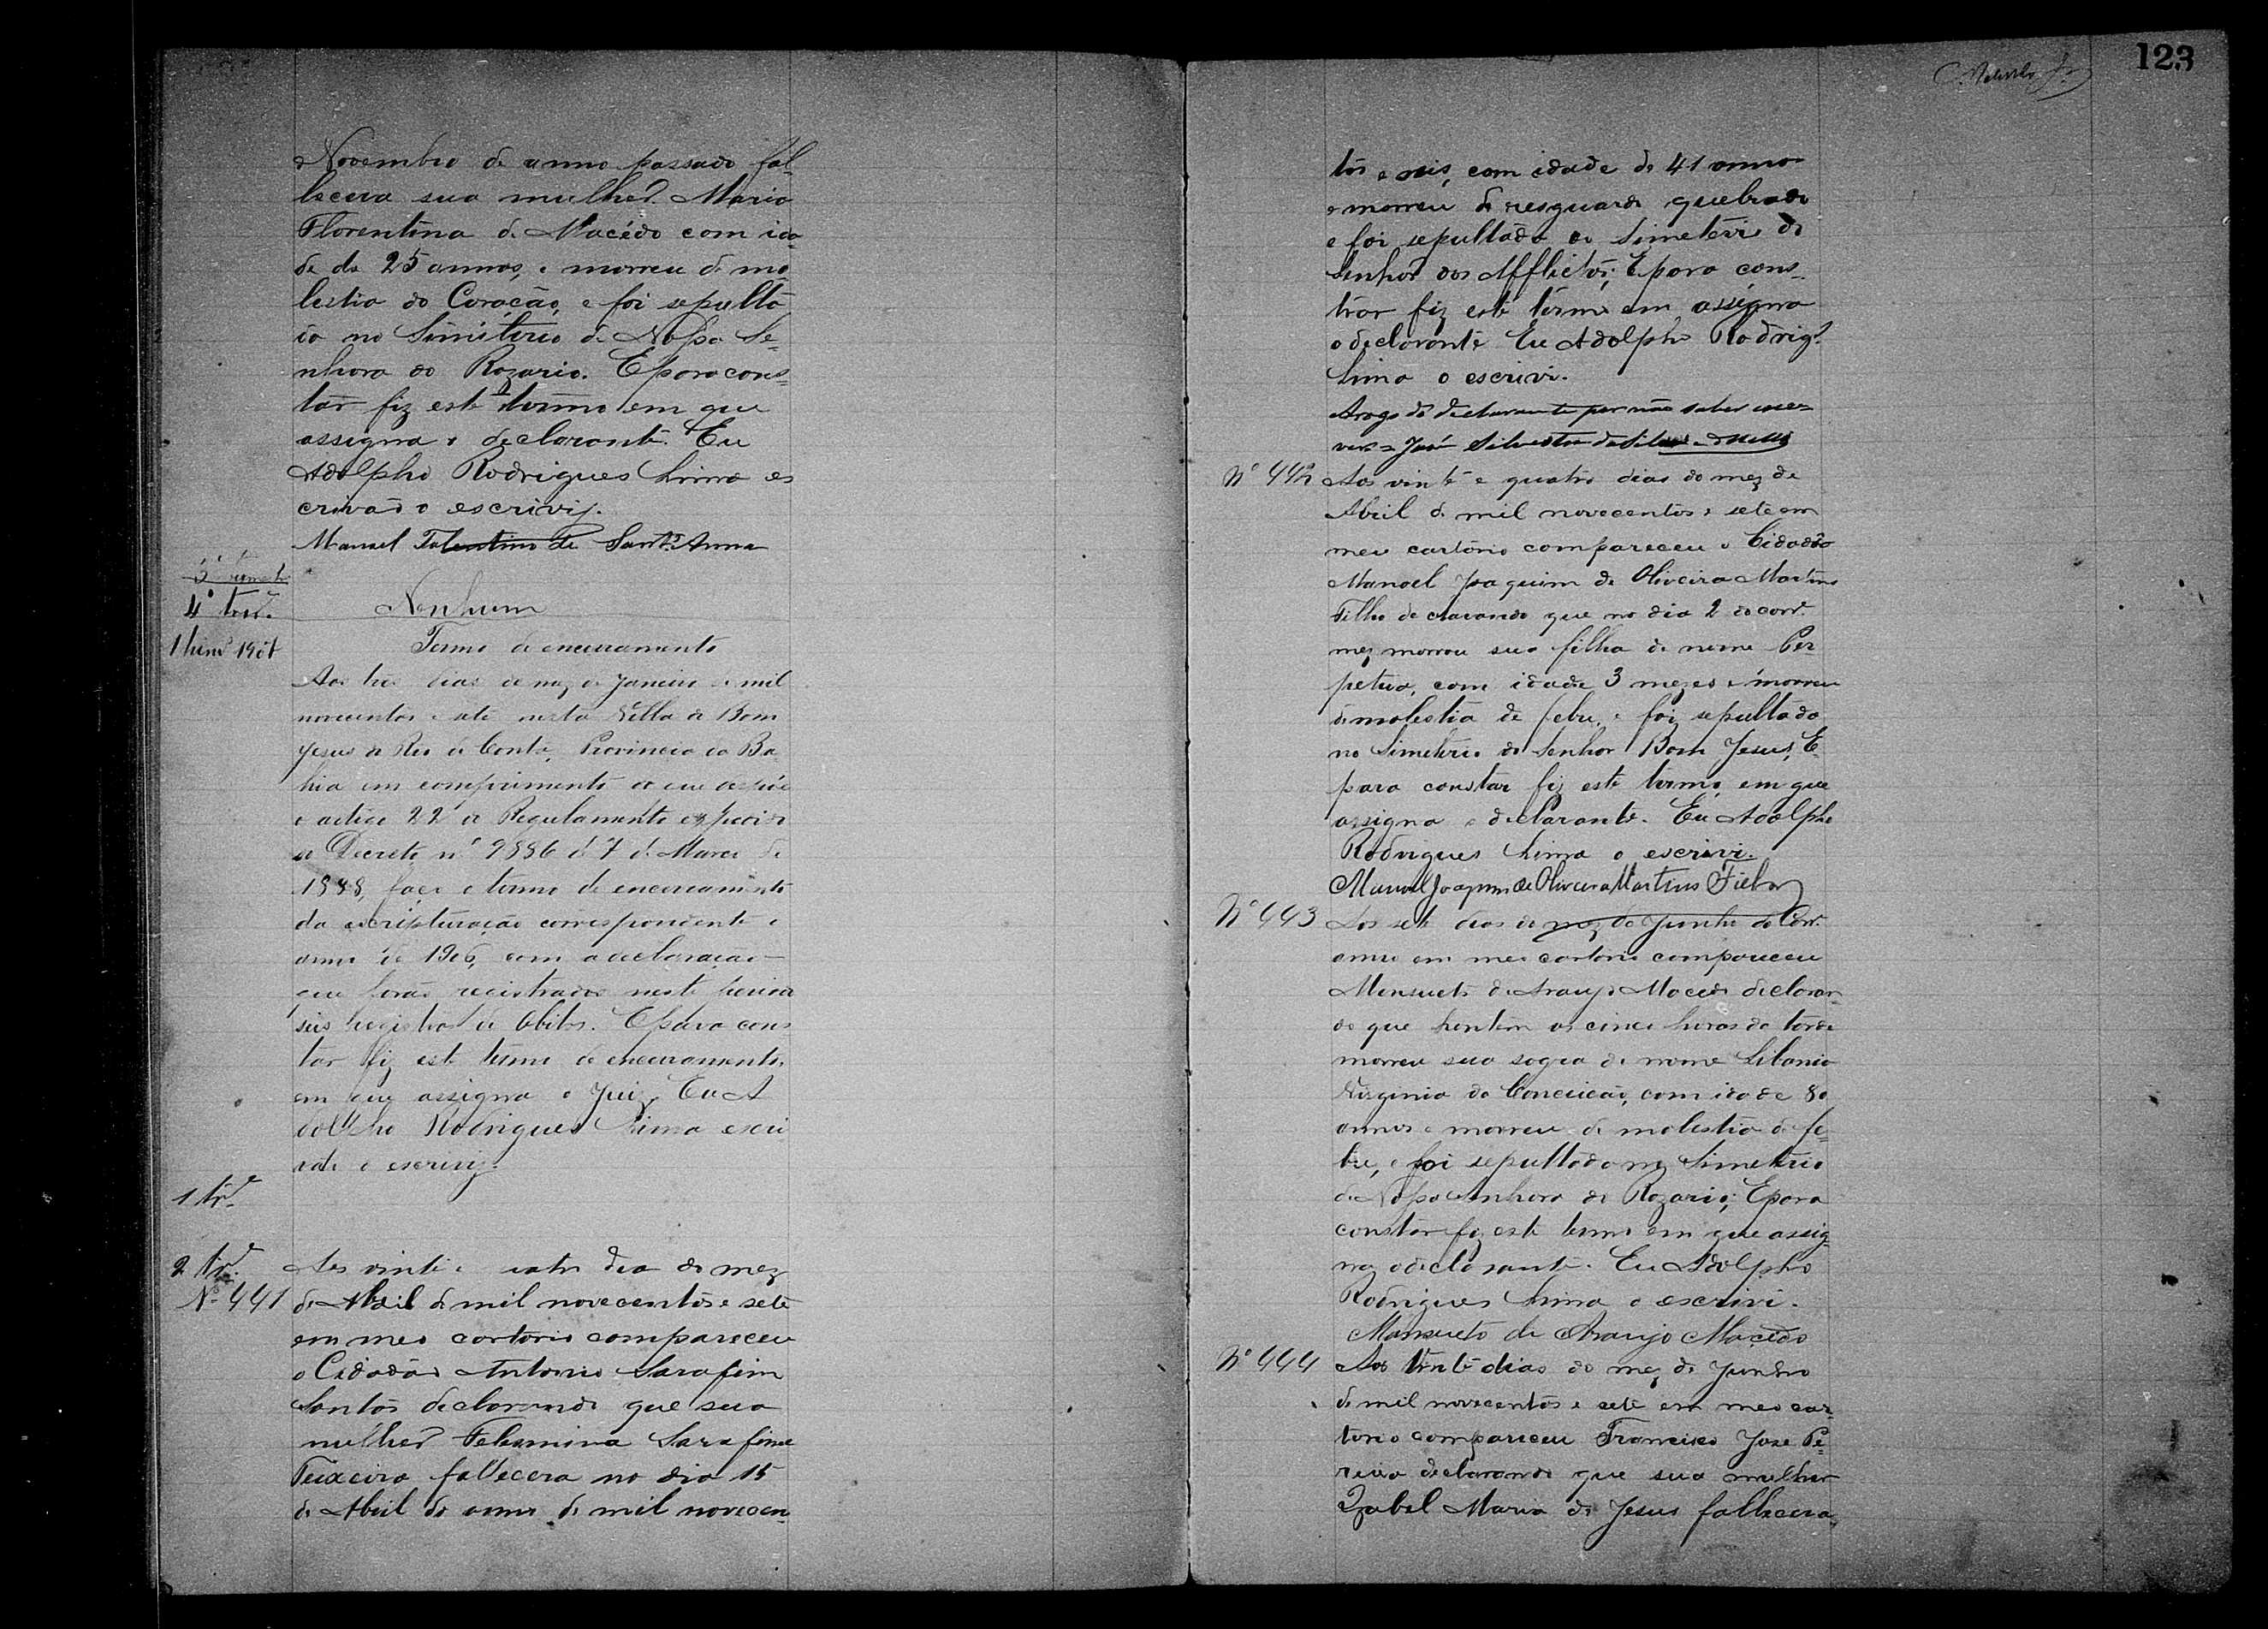 Novembro de anno passado fal-
lecera sua mulher Maria
Florentina de Macêdo com ida-
de de 25 annos, e morreu de mo-
lestia do Coração, e foi sepulta-
da no Simiterio de Nossa Se-
nhora do Rozario. E para cons-
tar fiz este termo em que
assigna o declarante. Eu
Adolpho Rodrigues Lima es
crivão o escrivij.
Manoel Tolentino de Sant'Anna
4º trid.
Nenhum
1907
Termo de encerramento
Aos tres dias do mez de Janeiro de mil
novecentos e sete nesta Villa de Bom
Jesus do Rio de Contas, Provincia da Ba-
hia em comprimento do que
o artigo 22 do Regulamento
do Decreto nº 9886 de 7 de Março de
1888, faço o termo de encerramento
da escripturação correspondente o
anno de 1906, com a declaração
que forão registrados neste
seis registros de Obitos. E para cons
tar fiz este termo de encerramento,
em que assigna o Juiz. Eu A
dolpho Rodrigues Lima escri
vão o escrivij.
1 trd.
2 trd.
Nº 441
Aos vinte e quatro dia do mez
de Abril de mil novecentos e sete
em meo cartorio compareceu
o Cidadão Antonio Sarafim
Santos declarando que sua
mulher Felismina Sarafina
Teixeira fallecera no dia 15
de Abril do anno de mil novecen-
123
tos e seis, com idade de 41 annos
e morreu de resguardo quebrado
e foi sepultada no Simeterio do
Senhor dos Afflictos; E para cons-
tar fiz este termo em assigna
o declarante Eu Adolpho Rodrigs
Lima o escrivi.
Arogo do declarante por não saber escre-
ver = José Silvestre da Silva
Nº 442
Aos vinte e quatro dias do mez de
Abril de mil novecentos e sete em
meu cartorio compareceu o Cidadão
Manoel Joaquim de Oliveira Martins
Filho declarando que no dia 2 do corr.
mez morreu sua filha de nome Per-
petua, com idade 3 mezes e morreu
de molestia de febre, e foi sepultada
no Simeterio do Senhor Bom Jesus, E
para constar fiz este termo, em que
assigna o declarante. Eu Adolpho
Rodrigues Lima o escrivi.
Manoel Joaquim de Oliveira Martins Filho
Nº 443
Aos sete dias do mez de Junho do Corr.
anno em meo cartorio compareceu
Mansueto de Araujo Macedo declaran-
do que hontem as cinco horas da tarde
morreu sua sogra de nome Libania
Virginia da Conceicão, com idade 80
annos e morreu de molestia de fe-
bre, e foi sepultada no Simeterio
de Nossa Senhora do Rozario; E para
constar fiz este termo em que assig-
na o declarante. Eu Adolpho
Rodrigues Lima o escrivi.
Mansueto de Araujo Macedo
Nº 444
Aos vinte dias do mez de Junho
de mil novecentos e sete em meo car-
torio compareceu Francisco Jose Pe-
reira declarando que sua mulher
Izabel Maria de Jesus fallecera